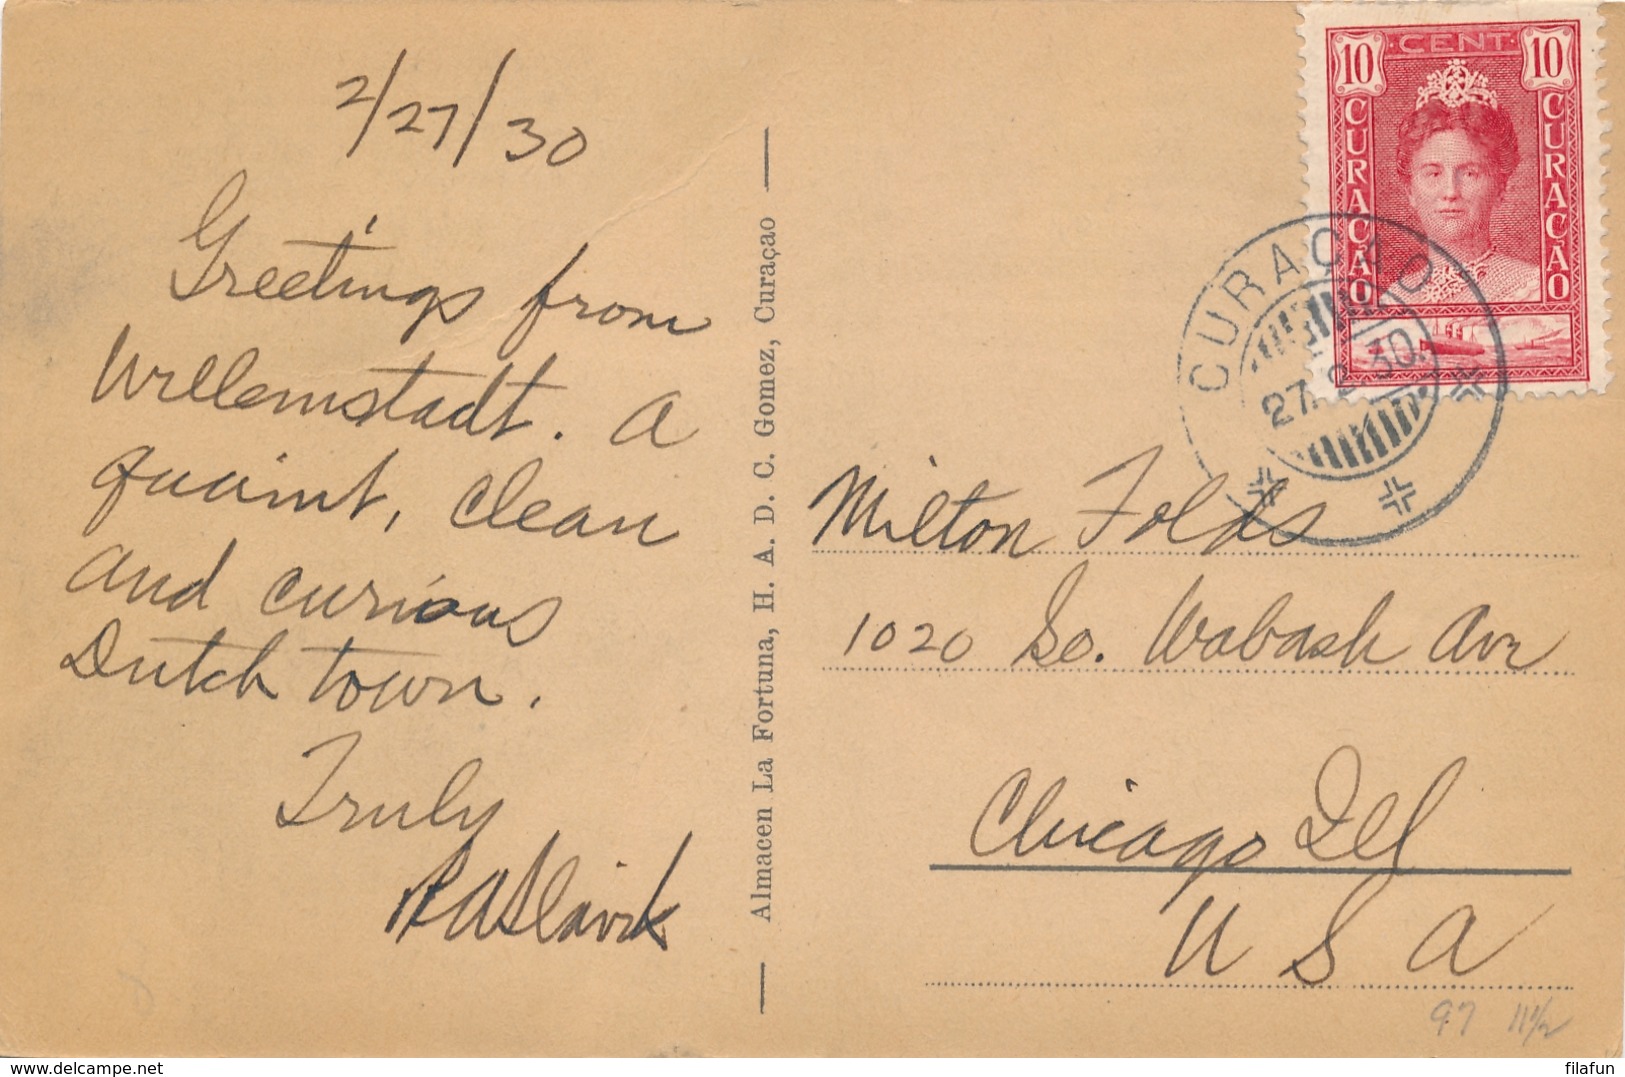 2/27/30
Greetings from
Willemstadt. A
quaint, clean
and curious
Dutch town.
Truly
Almacen La Fortuna, H. A. D. C. Gomez, Curaçao
10 CENT 10
CURAÇAO
CURAÇAO
CURAÇAO
27.2.30.
Milton Folds
1020 So. Wabash Ave
Chicago Ill
U S A
97 11½
delcampe.net
filafun